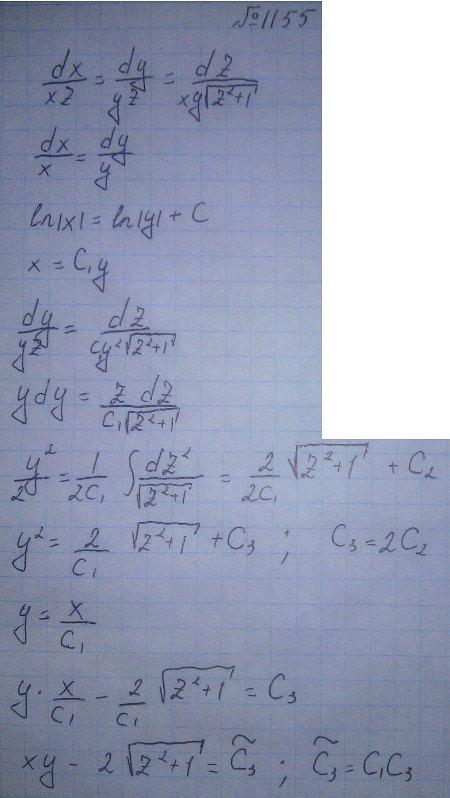 №1155
dx/xz = dy/yz = dz/xy√(z²+1)
dx/x = dy/y
ln|x| = ln|y| + C
x = C₁y
dy/yz = dz/C₁y²√(z²+1)
y dy = z dz/C₁√(z²+1)
y²/2 = 1/2C₁ ∫ dz²/√(z²+1) = 2/2C₁ √(z²+1) + C₂
y² = 2/C₁ √(z²+1) + C₃ ; C₃ = 2C₂
y = x/C₁
y · x/C₁ − 2/C₁ √(z²+1) = C₃
xy − 2√(z²+1) = C̃₃ ; C̃₃ = C₁C₃